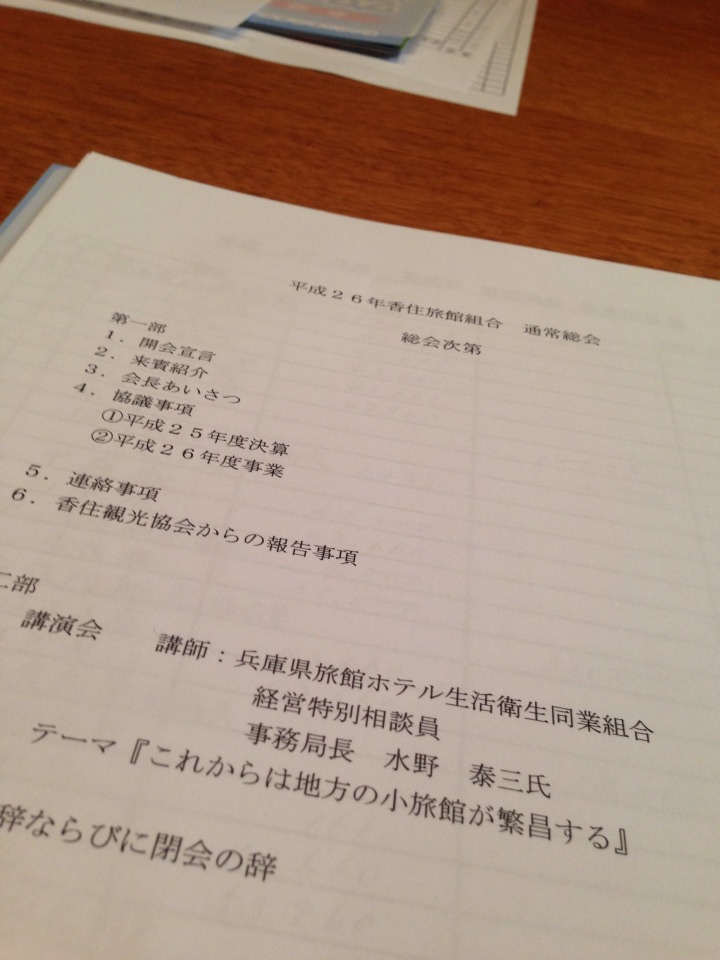 平成２６年香住旅館組合　通常総会
総会次第
第一部
１．開会宣言
２．来賓紹介
３．会長あいさつ
４．協議事項
①平成２５年度決算
②平成２６年度事業
５．連絡事項
６．香住観光協会からの報告事項
二部
講演会　　講師：兵庫県旅館ホテル生活衛生同業組合
経営特別相談員
事務局長　水野　泰三氏
テーマ『これからは地方の小旅館が繁昌する』
辞ならびに閉会の辞